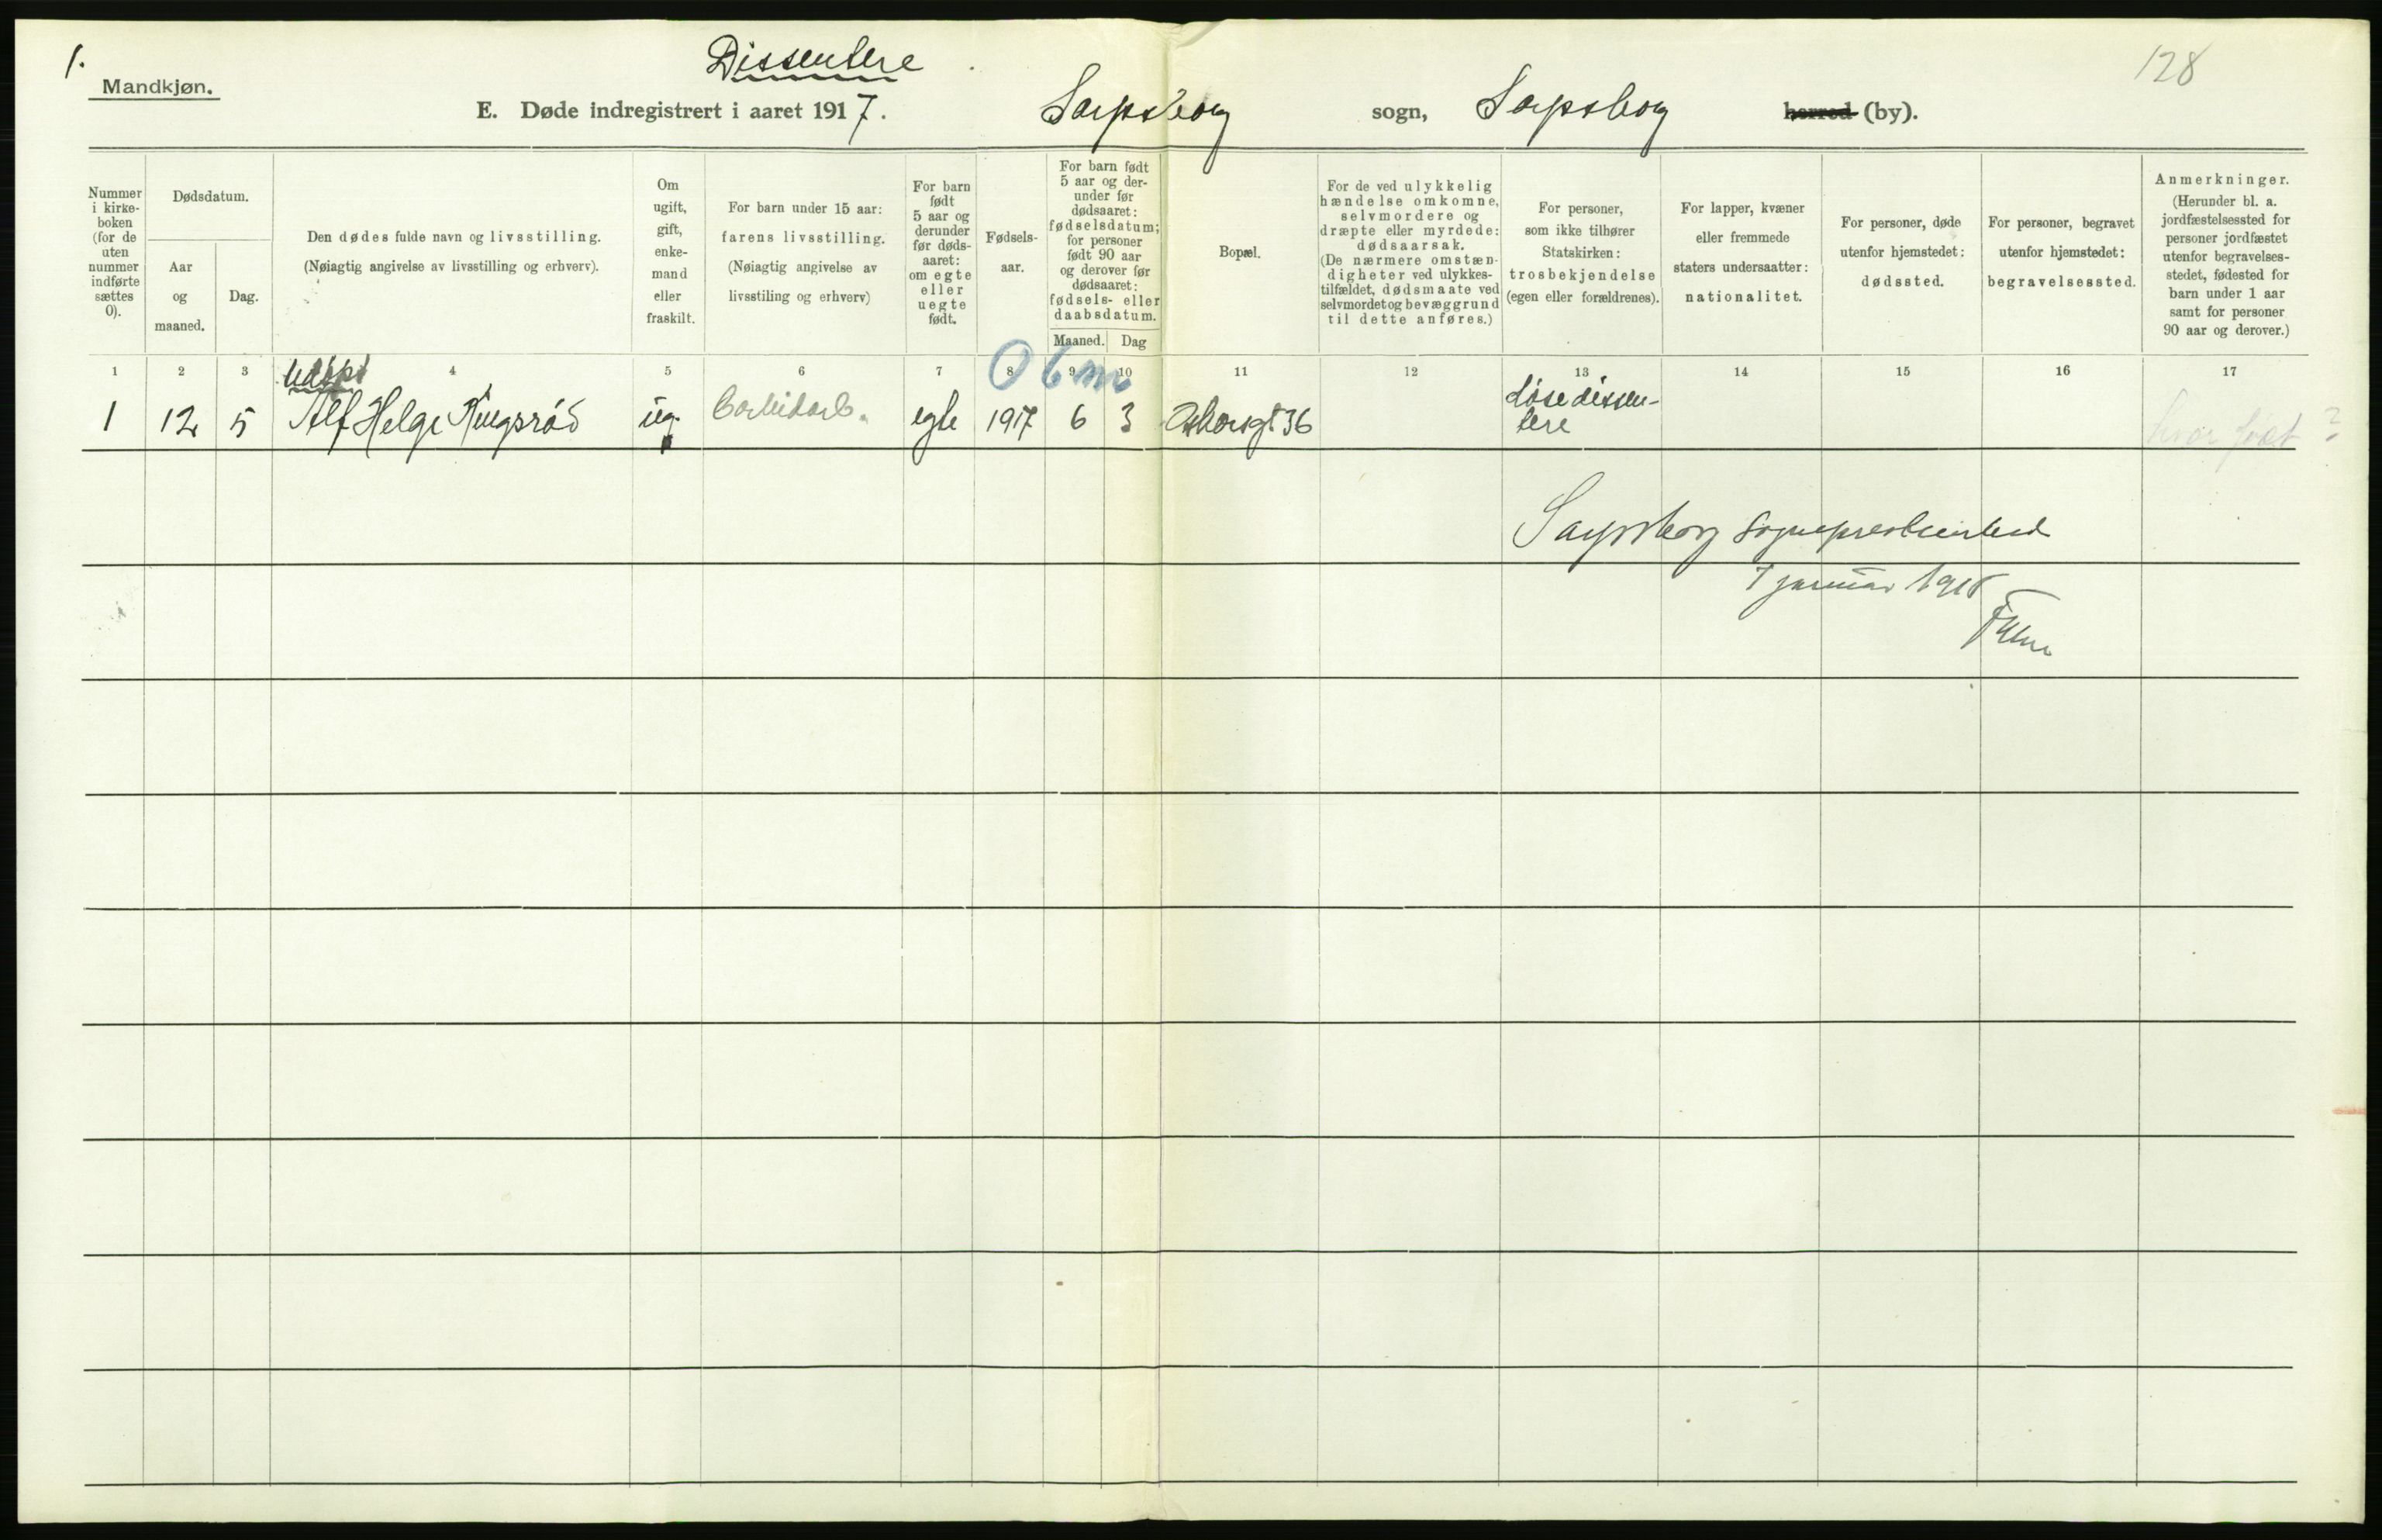 1.
Dissentere
128
Mandkjøn.
E. Døde indregistrert i aaret 1917. Sarpsborg sogn, Sarpsborg herred (by).
Nummer i kirke-boken (for de uten nummer indførte sættes 0).
Dødsdatum.
Aar og maaned.
Dag.
Den dødes fulde navn og livsstilling.
(Nøiagtig angivelse av livsstilling og erhverv).
Om ugift, gift, enke-mand eller fraskilt.
For barn under 15 aar:
farens livsstilling.
(Nøiagtig angivelse av
livsstiling og erhverv)
For barn født 5 aar og derunder før døds-aaret: om egte eller uegte født.
Fødsels-aar.
For barn født
5 aar og der-
under før
dødsaaret:
fødselsdatum;
for personer
født 90 aar
og derover før
dødsaaret:
fødsels- eller
daabsdatum.
Maaned. Dag
Bopæl.
For de ved ulykkelig
hændelse omkomne,
selvmordere og
dræpte eller myrdede:
dødsaarsak.
(De nærmere omstæn-
digheter ved ulykkes-
tilfældet, dødsmaate ved
selvmordet og bevæggrund
til dette anføres.)
For personer,
som ikke tilhører
Statskirken:
trosbekjendelse
(egen eller forældrenes).
For lapper, kvæner
eller fremmede
staters undersaatter:
nationalitet.
For personer, døde
utenfor hjemstedet:
dødssted.
For personer, begravet
utenfor hjemstedet:
begravelsessted.
Anmerkninger.
(Herunder bl. a.
jordfæstelsessted for
personer jordfæstet
utenfor begravelses-
stedet, fødested for
barn under 1 aar
samt for personer
90 aar og derover.)
1 2 3 4 5 6 7 8 9 10 11 12 13 14 15 16 17
Udøpt
0 6 m
1 12 5 Alf Helge Kingsrød ug. Carbidarb. egte 1917 6 3 36 Løse dissen-
tere
hvor født ?
Sarpsborg sogneprestembed
7 januar 1918